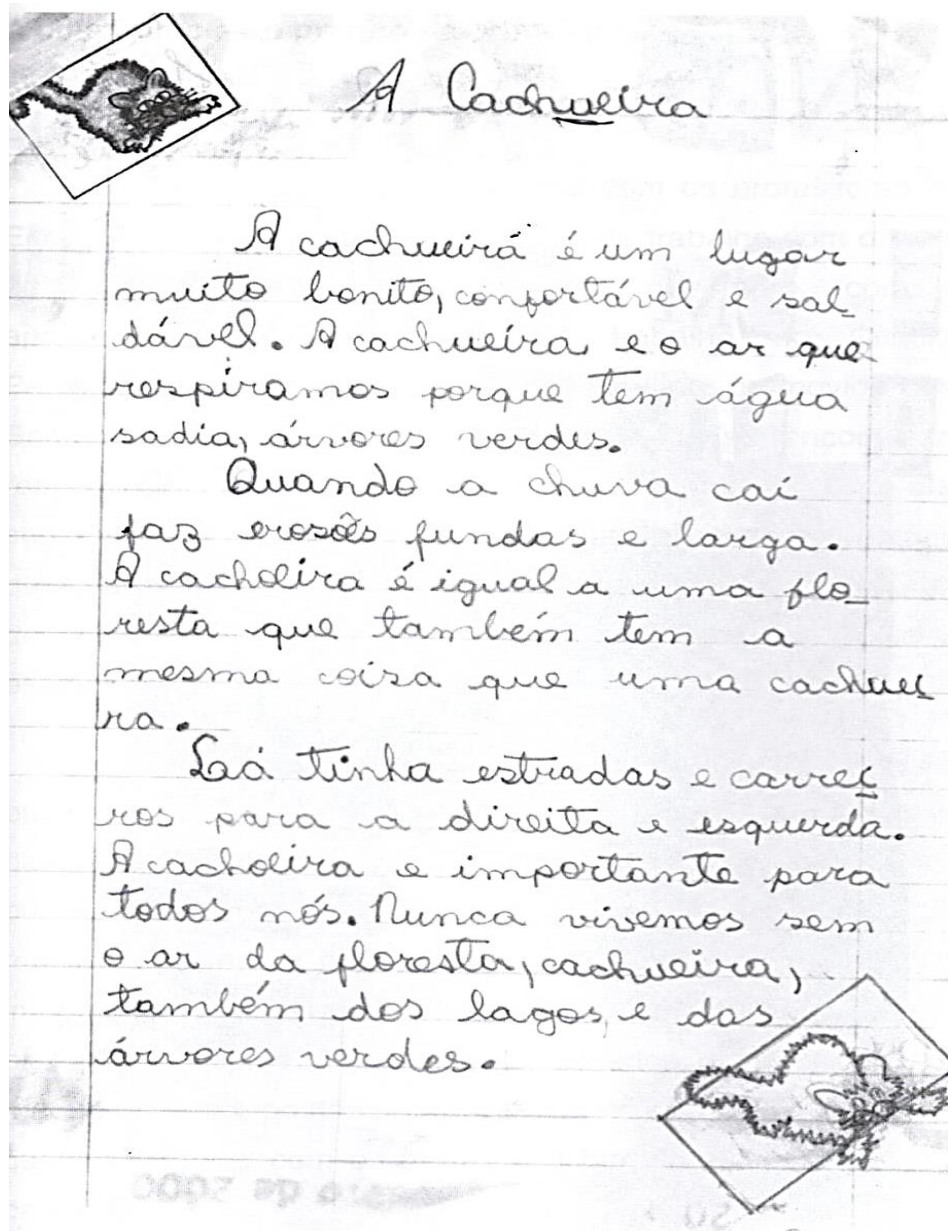 A Cachueira
A cachueirá é um lugar
muito bonito, confortável e sal
dável. A cachueira e o ar que
respiramos porque tem água
sadia, árvores verdes.
Quando a chuva cai
faz erosões fundas e larga.
A cacholira é igual a uma flo-
resta que também tem a
mesma coisa que uma cachuei
ra.
Lá tinha estradas e carrei
ros para a direita e esquerda.
A cachoeira e importante para
todos nós. Nunca vivemos sem
o ar da floresta, cachueira,
também dos lagos, e das
árvores verdes.